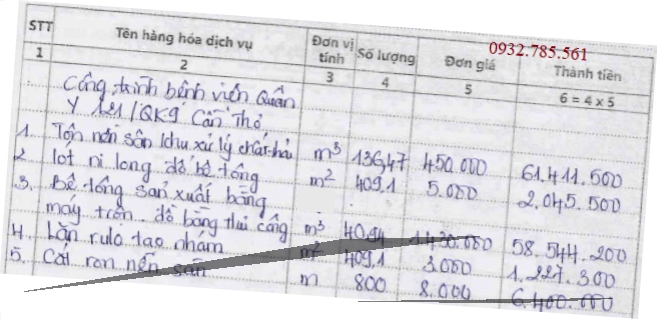 0932.785.561
STT Tên hàng hóa dịch vụ Đơn vị tính Số lượng Đơn giá Thành tiền
1 2 3 4 5 6 = 4 x 5
Công trình bệnh viện Quân
Y 121/QK9 Cần Thơ
1. Tôn nền sân khu xử lý chất thải m³ 136,47 450.000 61.411.500
2 lót ni lông đổ bê tông m² 409,1 5.000 2.045.500
3. Bê tông sản xuất bằng
máy trộn. đổ bằng thủ công m³ 40,94 1.430.000 58.544.200
4. Lăn rulo tạo nhám m² 409,1 3.000 1.227.300
5. Cắt ron nền sân m 800 8.000 6.400.000